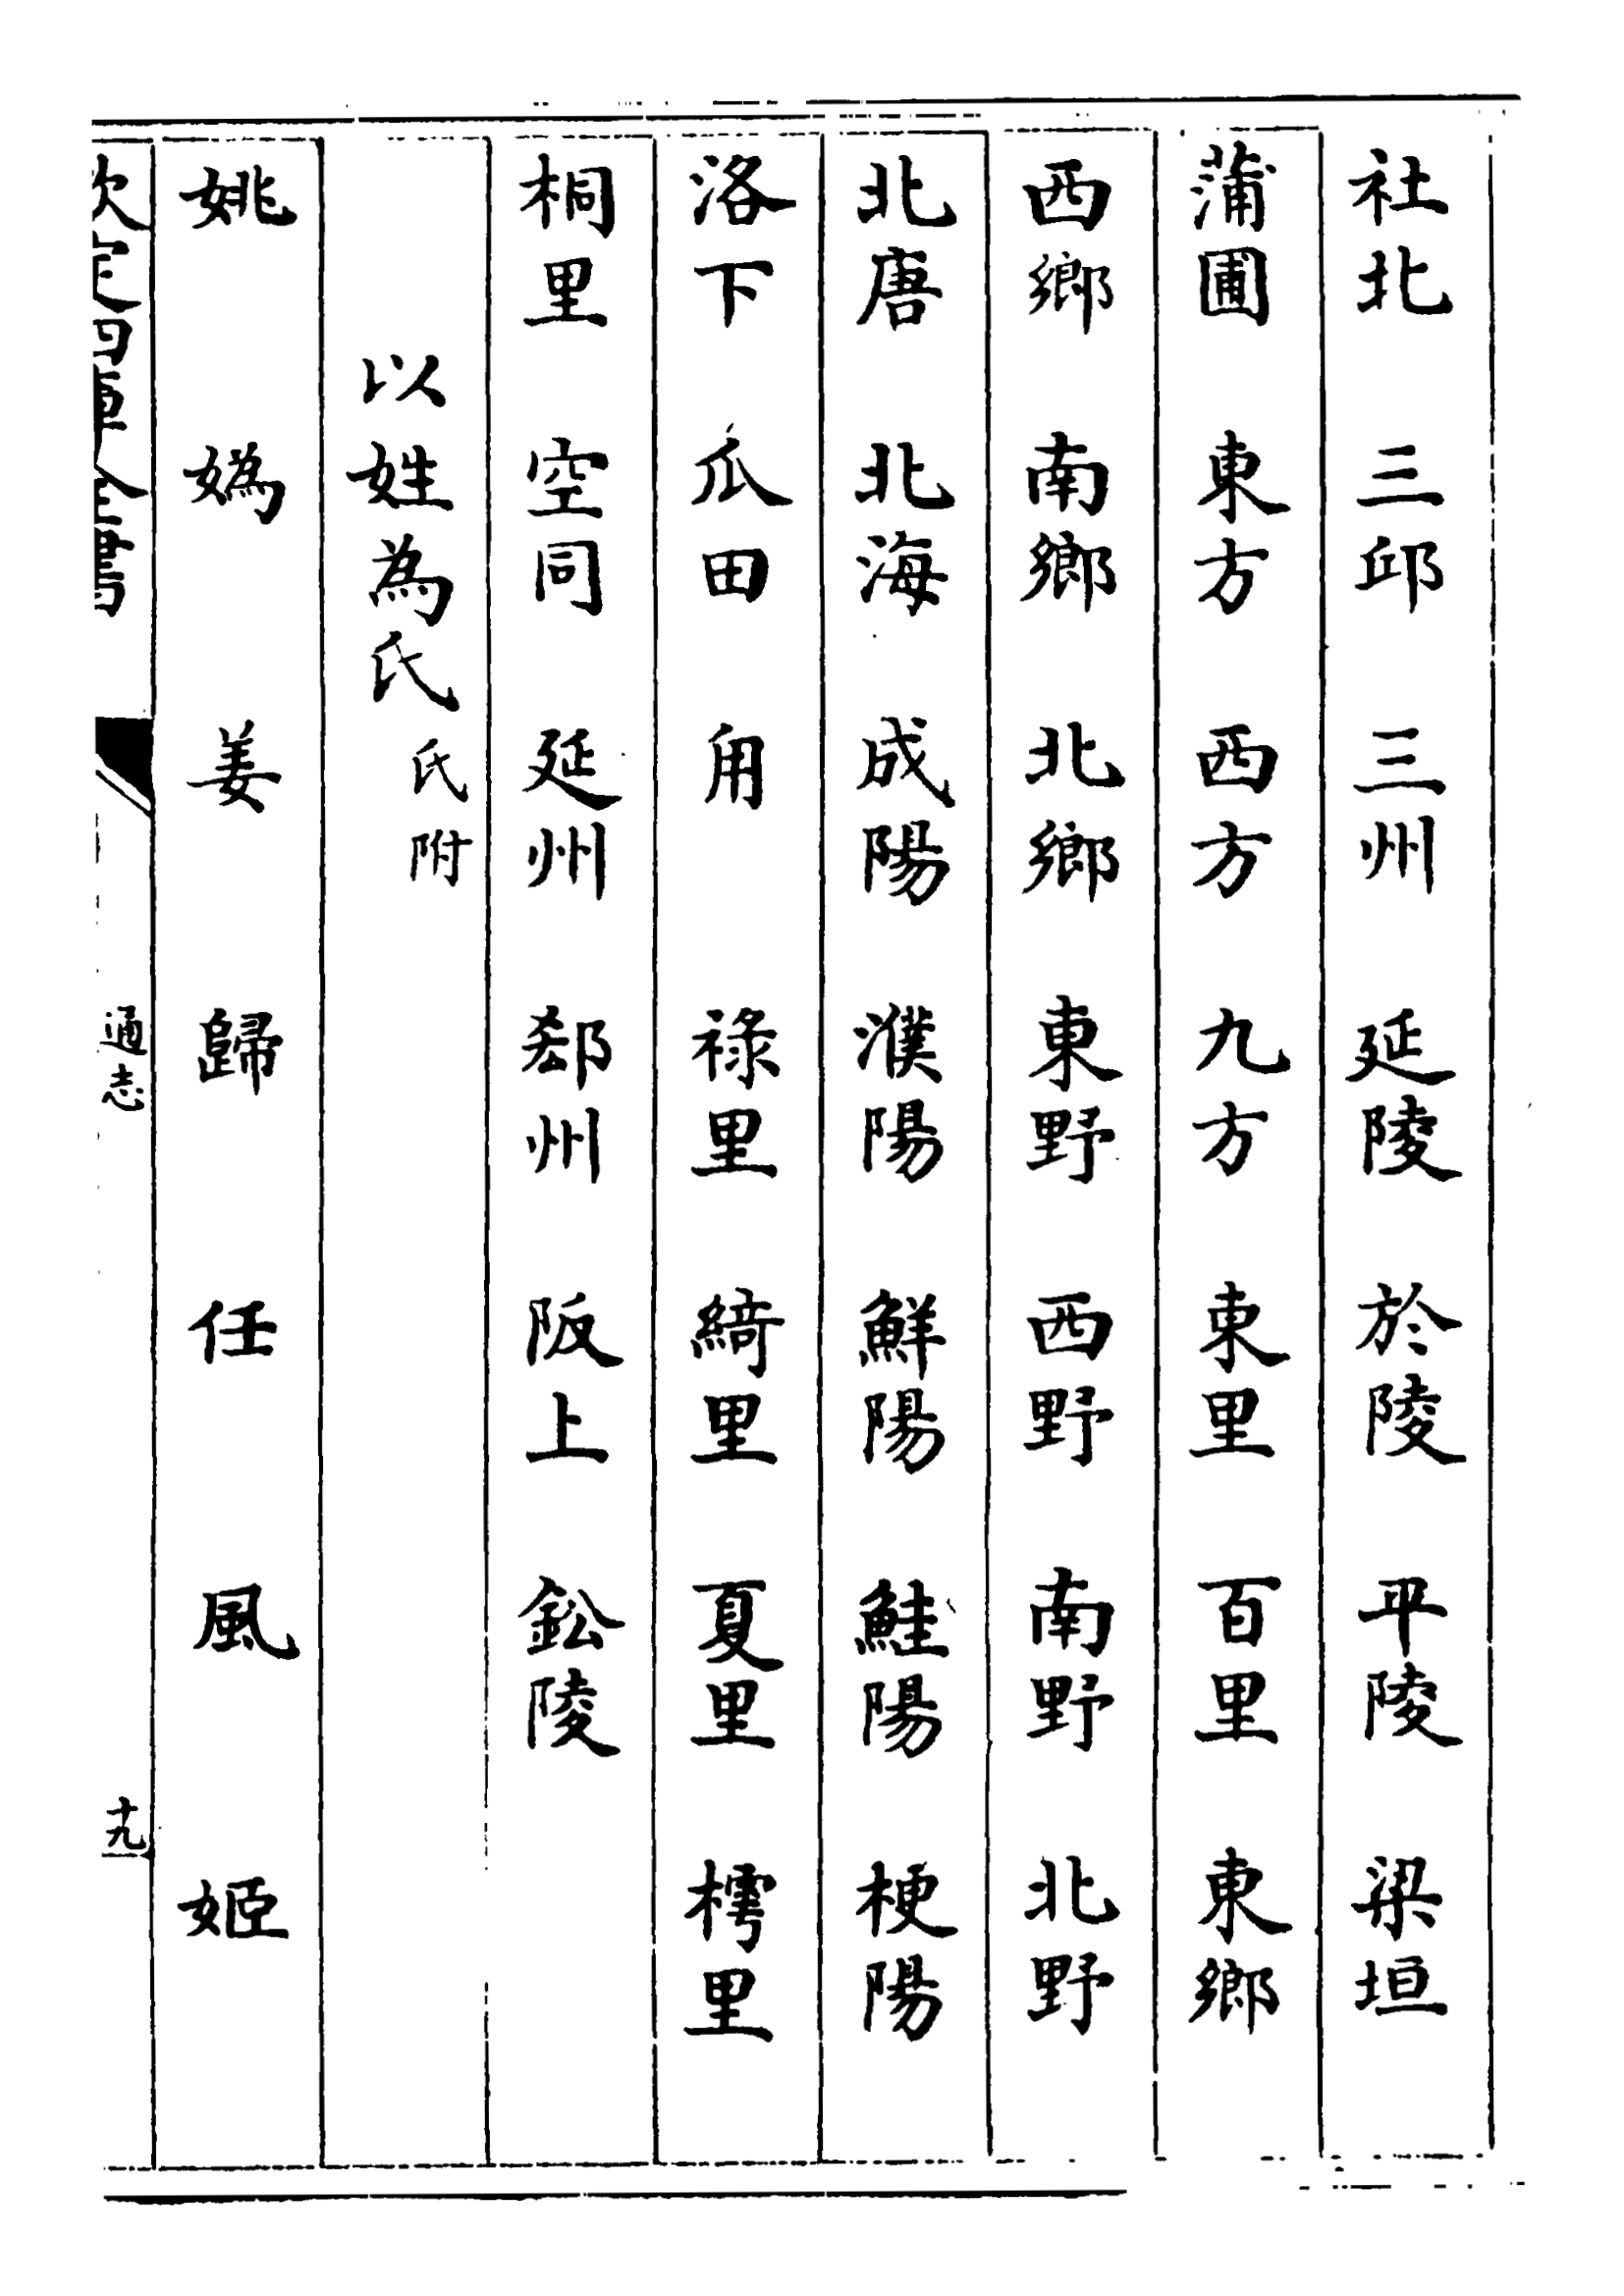 社北 三邱 三州 延陵 於陵 平陵 梁垣
蒲圃 東方 西方 九方 東里 百里 東鄉
西鄉 南鄉 北鄉 東野 西野 南野 北野
北唐 北海 成陽 濮陽 鮮陽 鮭陽 梗陽
洛下 瓜田 甪 祿里 綺里 夏里 樗里
桐里 空同 延州 郄州 阪上 鈆陵
以姓為氏 氏附
姚 媯 姜 歸 任 風 姬
欽定四庫全書
通志
十九